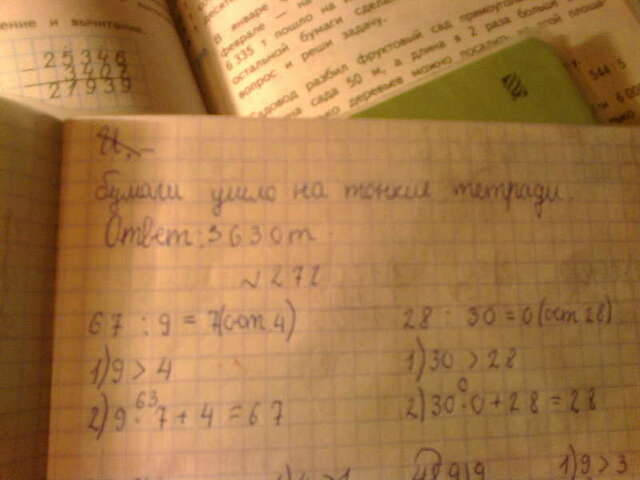 ение и вычитание.
25346
3407
27939
В январе
феврале — на
6 335 т пошло на
остальной бумаги сделал
вопрос и реши задачу.
Садовод разбил фруктовый сад прямоуголь
на сада 50 м, а длина в 2 раза больше
деревьев можно посадить
этой площа
544 : 5
6 00
бумаги ушло на тонкие тетради.
Ответ: 3630т.
№272
67 : 9 = 7(ост 4)
28 : 30 = 0(ост 28)
1) 9 > 4
1) 30 > 28
63
0
2) 9 · 7 + 4 = 67
2) 30 · 0 + 28 = 28
489|9
1) 9 > 3